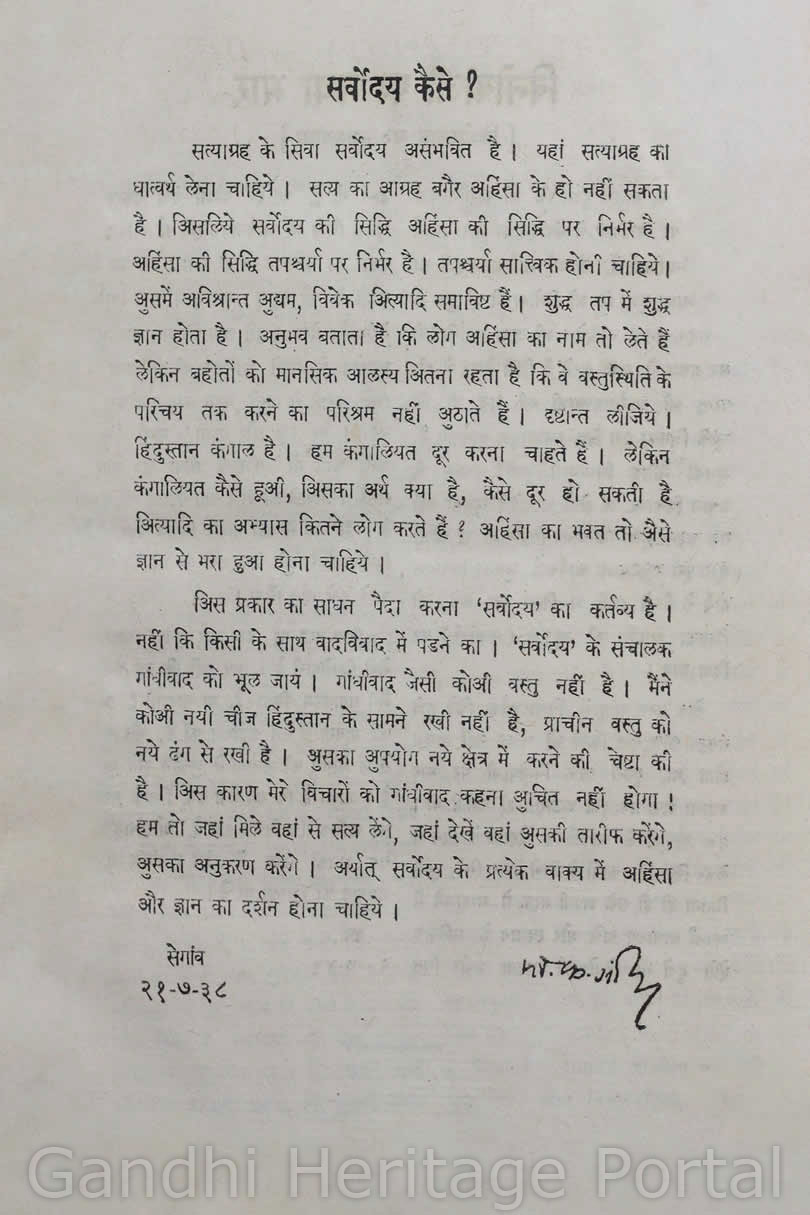 सर्वोदय कैसे ?
सत्याग्रह के सिवा सर्वोदय असंभवित है । यहां सत्याग्रह का
धात्वर्थ लेना चाहिये । सत्य का आग्रह बगैर अहिंसा के हो नहीं सकता
है । अिसलिये सर्वोदय की सिद्धि अहिंसा की सिद्धि पर निर्भर है ।
अहिंसा की सिद्धि तपश्चर्या पर निर्भर है । तपश्चर्या सात्त्विक होनी चाहिये ।
अुसमें अविश्रान्त अुद्यम, विवेक अित्यादि समाविष्ट हैं । शुद्ध तप में शुद्ध
ज्ञान होता है । अनुभव बताता है कि लोग अहिंसा का नाम तो लेते हैं
लेकिन बहोतों को मानसिक आलस्य अितना रहता है कि वे वस्तुस्थिति के
परिचय तक करने का परिश्रम नहीं अुठाते हैं । दृष्टान्त लीजिये ।
हिंदुस्तान कंगाल है । हम कंगालियत दूर करना चाहते हैं । लेकिन
कंगालियत कैसे हूअी, अिसका अर्थ क्या है, कैसे दूर हो सकती है
अित्यादि का अभ्यास कितने लोग करते हैं ? अहिंसा का भक्त तो अैसे
ज्ञान से भरा हुआ होना चाहिये ।
अिस प्रकार का साधन पैदा करना ‘सर्वोदय’ का कर्तव्य है ।
नहीं कि किसी के साथ वादविवाद में पडने का । ‘सर्वोदय’ के संचालक
गांधीवाद को भूल जायं । गांधीवाद जैसी कोअी वस्तु नहीं है । मैंने
कोअी नयी चीज हिंदुस्तान के सामने रखी नहीं है, प्राचीन वस्तु को
नये ढंग से रखी है । अुसका अुपयोग नये क्षेत्र में करने की चेष्टा की
है । अिस कारण मेरे विचारों को गांधीवाद कहना अुचित नहीं होगा !
हम तो जहां मिले वहां से सत्य लेंगे, जहां देखें वहां अुसकी तारीफ करेंगे,
अुसका अनुकरण करेंगे । अर्थात् सर्वोदय के प्रत्येक वाक्य में अहिंसा
और ज्ञान का दर्शन होना चाहिये ।
सेगांव
२१-७-३८
मो. क. गांधी
Gandhi Heritage Portal